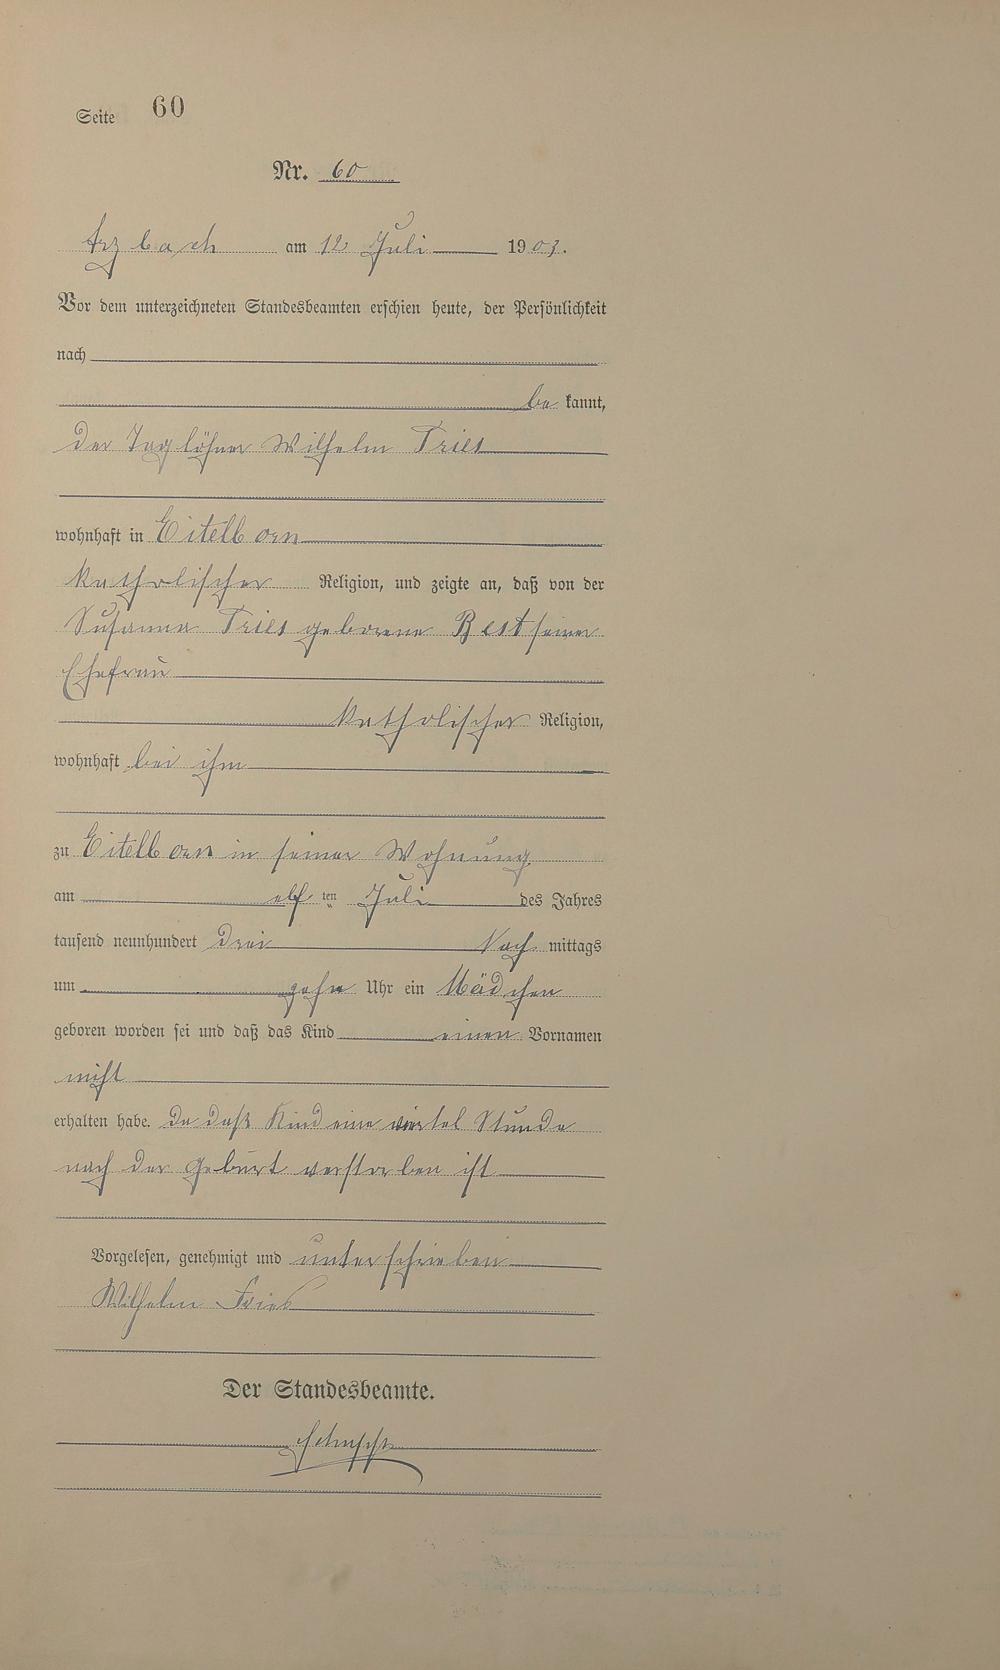 Seite 60
Nr. 60
Arzbach am 12 Juli 1903.
Vor dem unterzeichneten Standesbeamten erschien heute, der Persönlichkeit
nach
be kannt,
der Taglöhner Wilhelm Fries
wohnhaft in Eitelborn
katholischer Religion, und zeigte an, daß von der
Susanna Fries geborene Best seiner
Ehefrau
katholischer Religion,
wohnhaft bei ihm
zu Eitelborn in seiner Wohnung
am elf ten Juli des Jahres
tausend neunhundert drei Nach mittags
um zehn Uhr ein Mädchen
geboren worden sei und daß das Kind einen Vornamen
nicht
erhalten habe. da daß Kind eine viertel Stunde
nach der Geburt verstorben ist
Vorgelesen, genehmigt und unterschrieben
Wilhelm Fries
Der Standesbeamte.